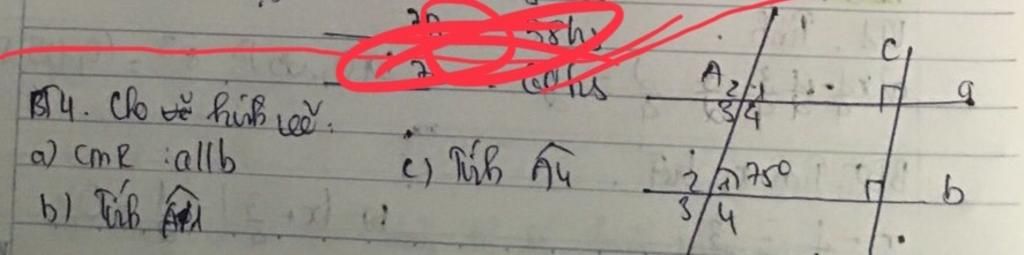 BT4. Cho vẽ hình vẽ.
a) CMR : a//b
c) Tính Â4
b) Tính Â1
A 2 1
3 4
c
a
2 1 75°
3 4
b